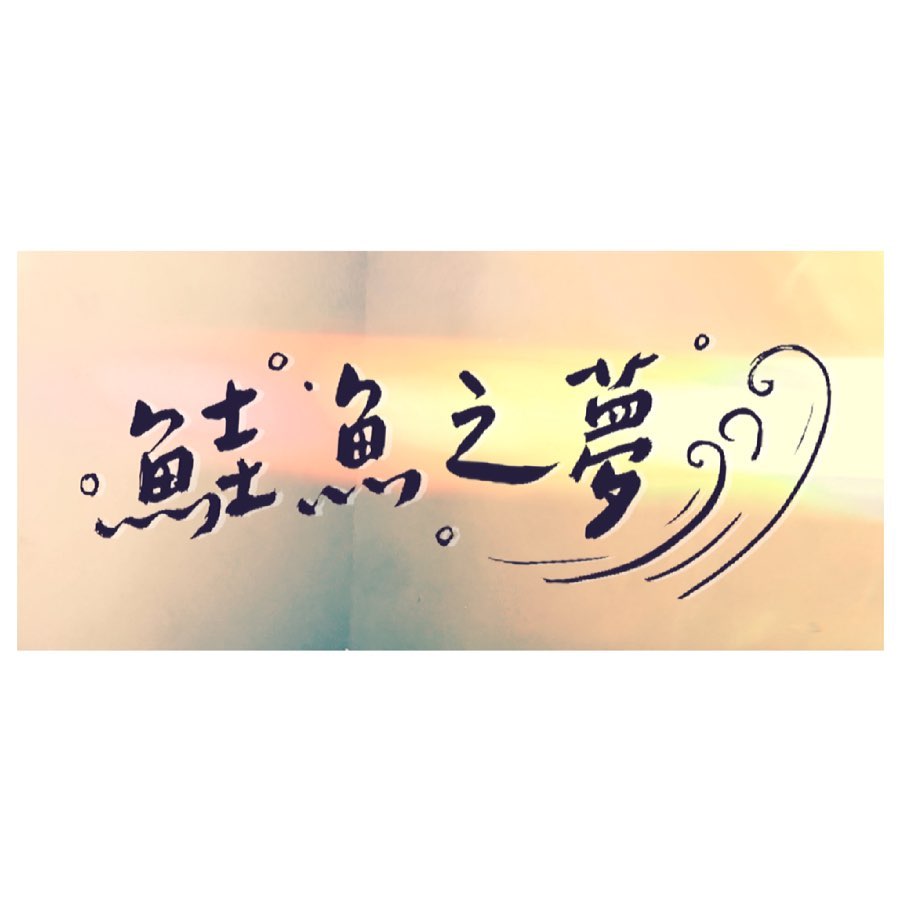 鮭魚之夢